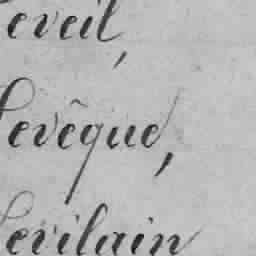 eveil,
Levêque,
Levilain